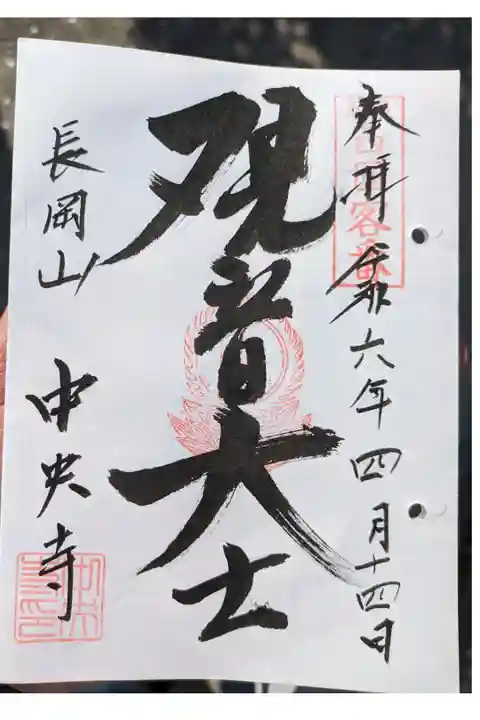 奉拝 令和六年四月十四日
観音大士
長岡山 中央寺